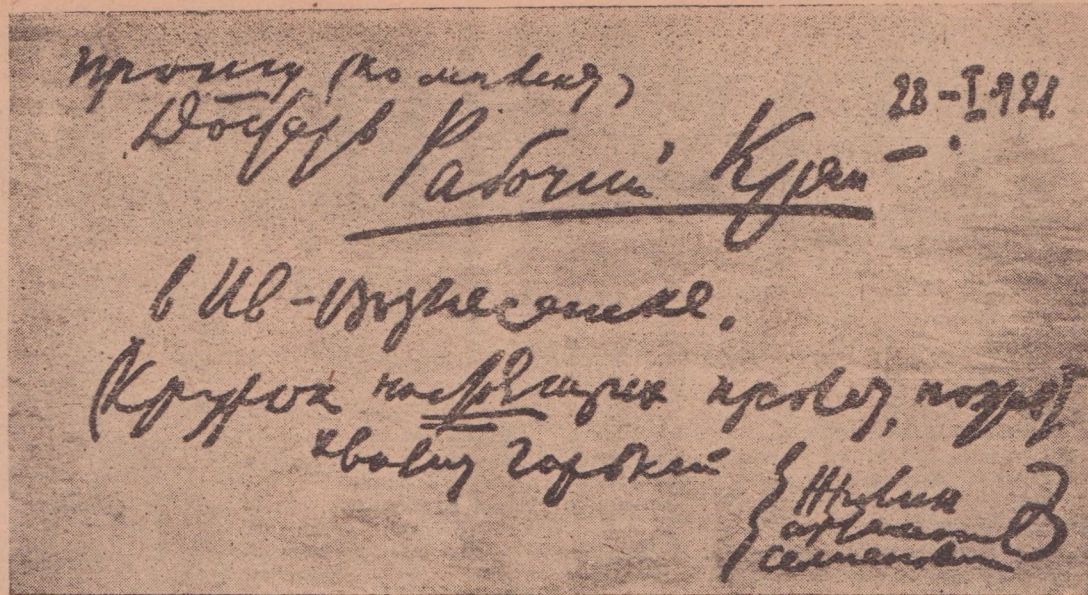 прошу (комплект)
28-I.1921
Достать Рабочий Край
в Ив-Вознесенске.
(Кружок настоящих пролет. поэтов)
хвалит Горький
Жижин
Артамонов
Семеновский